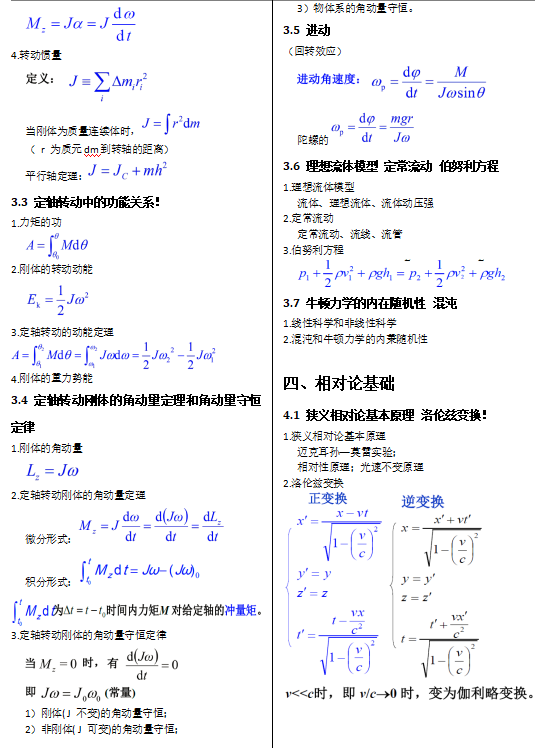 M_z = Jα = J dω/dt
4.转动惯量
定义: J ≡ ∑_i Δm_i r_i^2
当刚体为质量连续体时, J = ∫ r^2 dm
( r 为质元 dm 到转轴的距离)
平行轴定理: J = J_C + mh^2
3.3 定轴转动中的功能关系!
1.力矩的功
A = ∫_{θ_0}^{θ} M dθ
2.刚体的转动动能
E_k = 1/2 Jω^2
3.定轴转动的动能定理
A = ∫_{θ_1}^{θ_2} M dθ = ∫_{ω_1}^{ω_2} Jω dω = 1/2 Jω_2^2 − 1/2 Jω_1^2
4.刚体的重力势能
3.4 定轴转动刚体的角动量定理和角动量守恒
定律
1.刚体的角动量
L_z = Jω
2.定轴转动刚体的角动量定理
微分形式: M_z = J dω/dt = d(Jω)/dt = dL_z/dt
积分形式: ∫_{t_0}^{t} M_z dt = Jω − (Jω)_0
∫_{t_0}^{t} M_z dt 为Δt = t − t_0时间内力矩M 对给定轴的冲量矩。
3.定轴转动刚体的角动量守恒定律
当 M_z = 0 时, 有 d(Jω)/dt = 0
即 Jω = J_0ω_0 (常量)
1) 刚体(J 不变)的角动量守恒;
2) 非刚体(J 可变)的角动量守恒;
3) 物体系的角动量守恒。
3.5 进动
(回转效应)
进动角速度: ω_p = dφ/dt = M/(Jω sinθ)
陀螺的 ω_p = dφ/dt = mgr/(Jω)
3.6 理想流体模型 定常流动 伯努利方程
1.理想流体模型
流体、理想流体、流体动压强
2.定常流动
定常流动、流线、流管
3.伯努利方程
p_1 + 1/2 ρv_1^2 + ρgh_1 = p_2 + 1/2 ρv_2^2 + ρgh_2
3.7 牛顿力学的内在随机性 混沌
1.线性科学和非线性科学
2.混沌和牛顿力学的内禀随机性
四、相对论基础
4.1 狭义相对论基本原理 洛伦兹变换!
1.狭义相对论基本原理
迈克耳孙—莫雷实验;
相对性原理; 光速不变原理
2.洛伦兹变换
正变换 逆变换
x′ = (x − vt)/√(1 − (v/c)^2) x = (x′ + vt′)/√(1 − (v/c)^2)
y′ = y y = y′
z′ = z z = z′
t′ = (t − vx/c^2)/√(1 − (v/c)^2) t = (t′ + vx′/c^2)/√(1 − (v/c)^2)
v<<c时, 即 v/c→0 时, 变为伽利略变换。